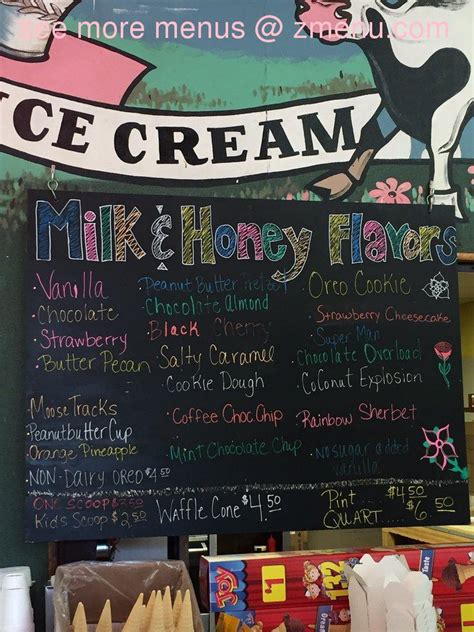 see more menus @ zmenu.com
ICE CREAM
Milk & Honey Flavors
Vanilla
Chocolate
Strawberry
Butter Pecan
Moose Tracks
Peanutbutter Cup
Orange Pineapple
NON-Dairy OREO $4.50
Peanut Butter
Chocolate Almond
Black Cherry
Salty Caramel
Cookie Dough
Coffee Choc Chip
Mint Chocolate Chip
Oreo Cookie
Strawberry Cheesecake
Super Man
Chocolate Overload
Coconut Explosion
Rainbow Sherbet
No sugar added
vanilla
ONE SCOOP $3.50
Kids Scoop $2.50
Waffle Cone $4.50
Pint $4.50
QUART $6.50
JOY
#1
in Taste